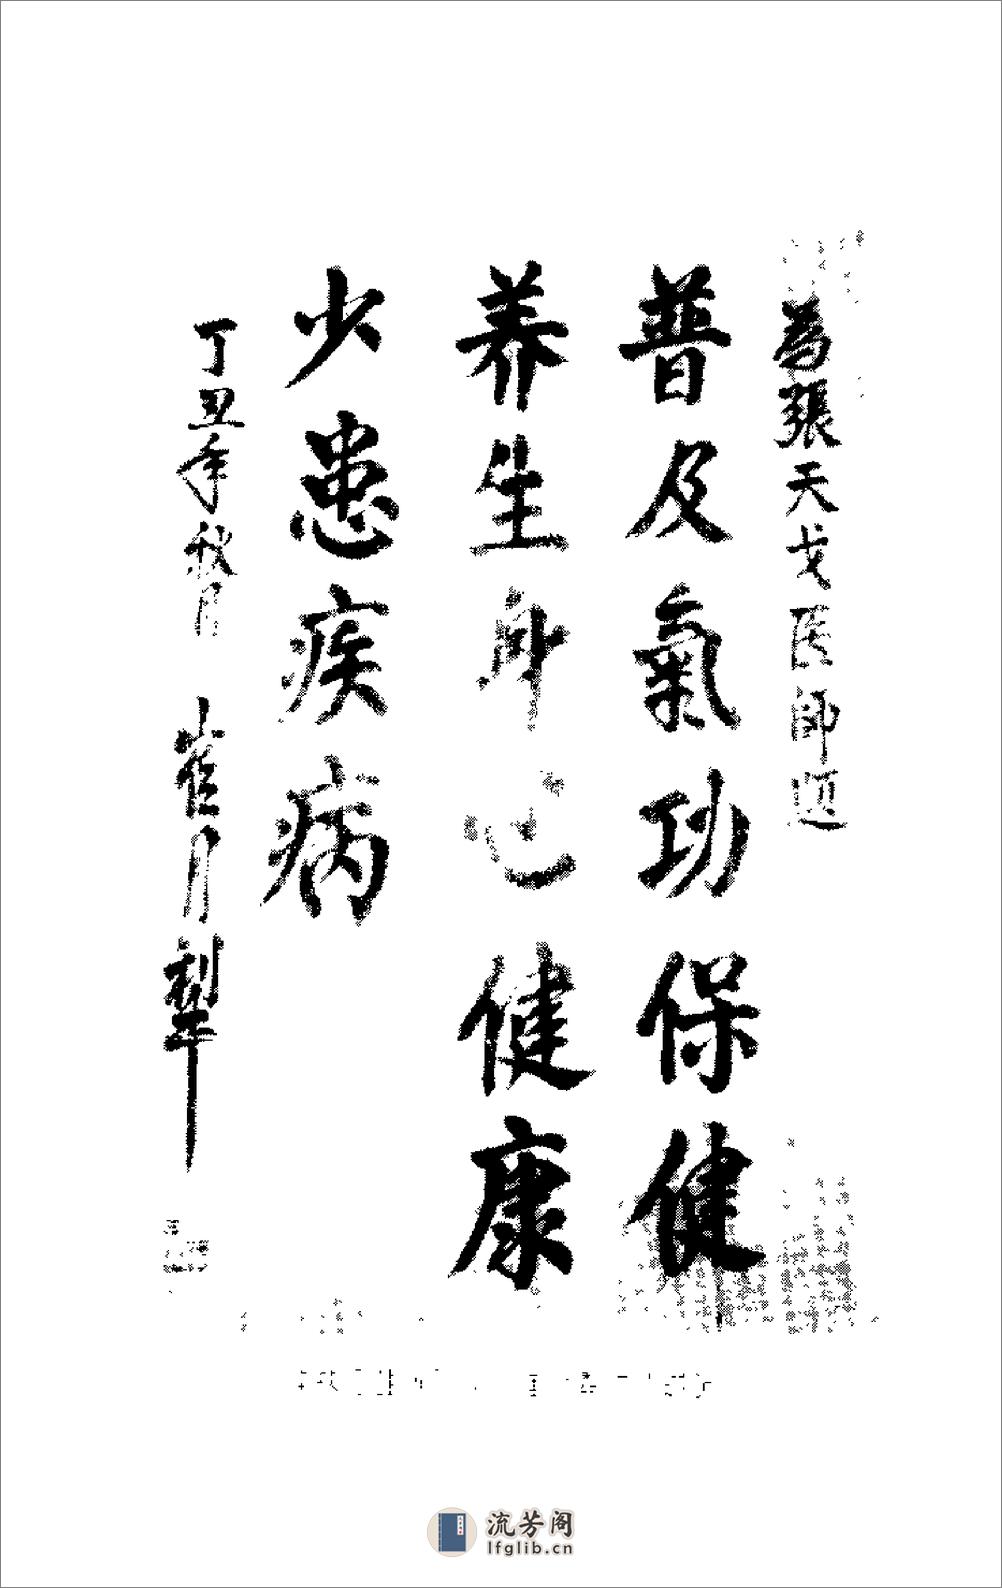 為張天戈医師题
普及氣功保健
养生身心健康
少患疾病
丁丑年秋月
崔月犁
流芳阁
lfglib.cn